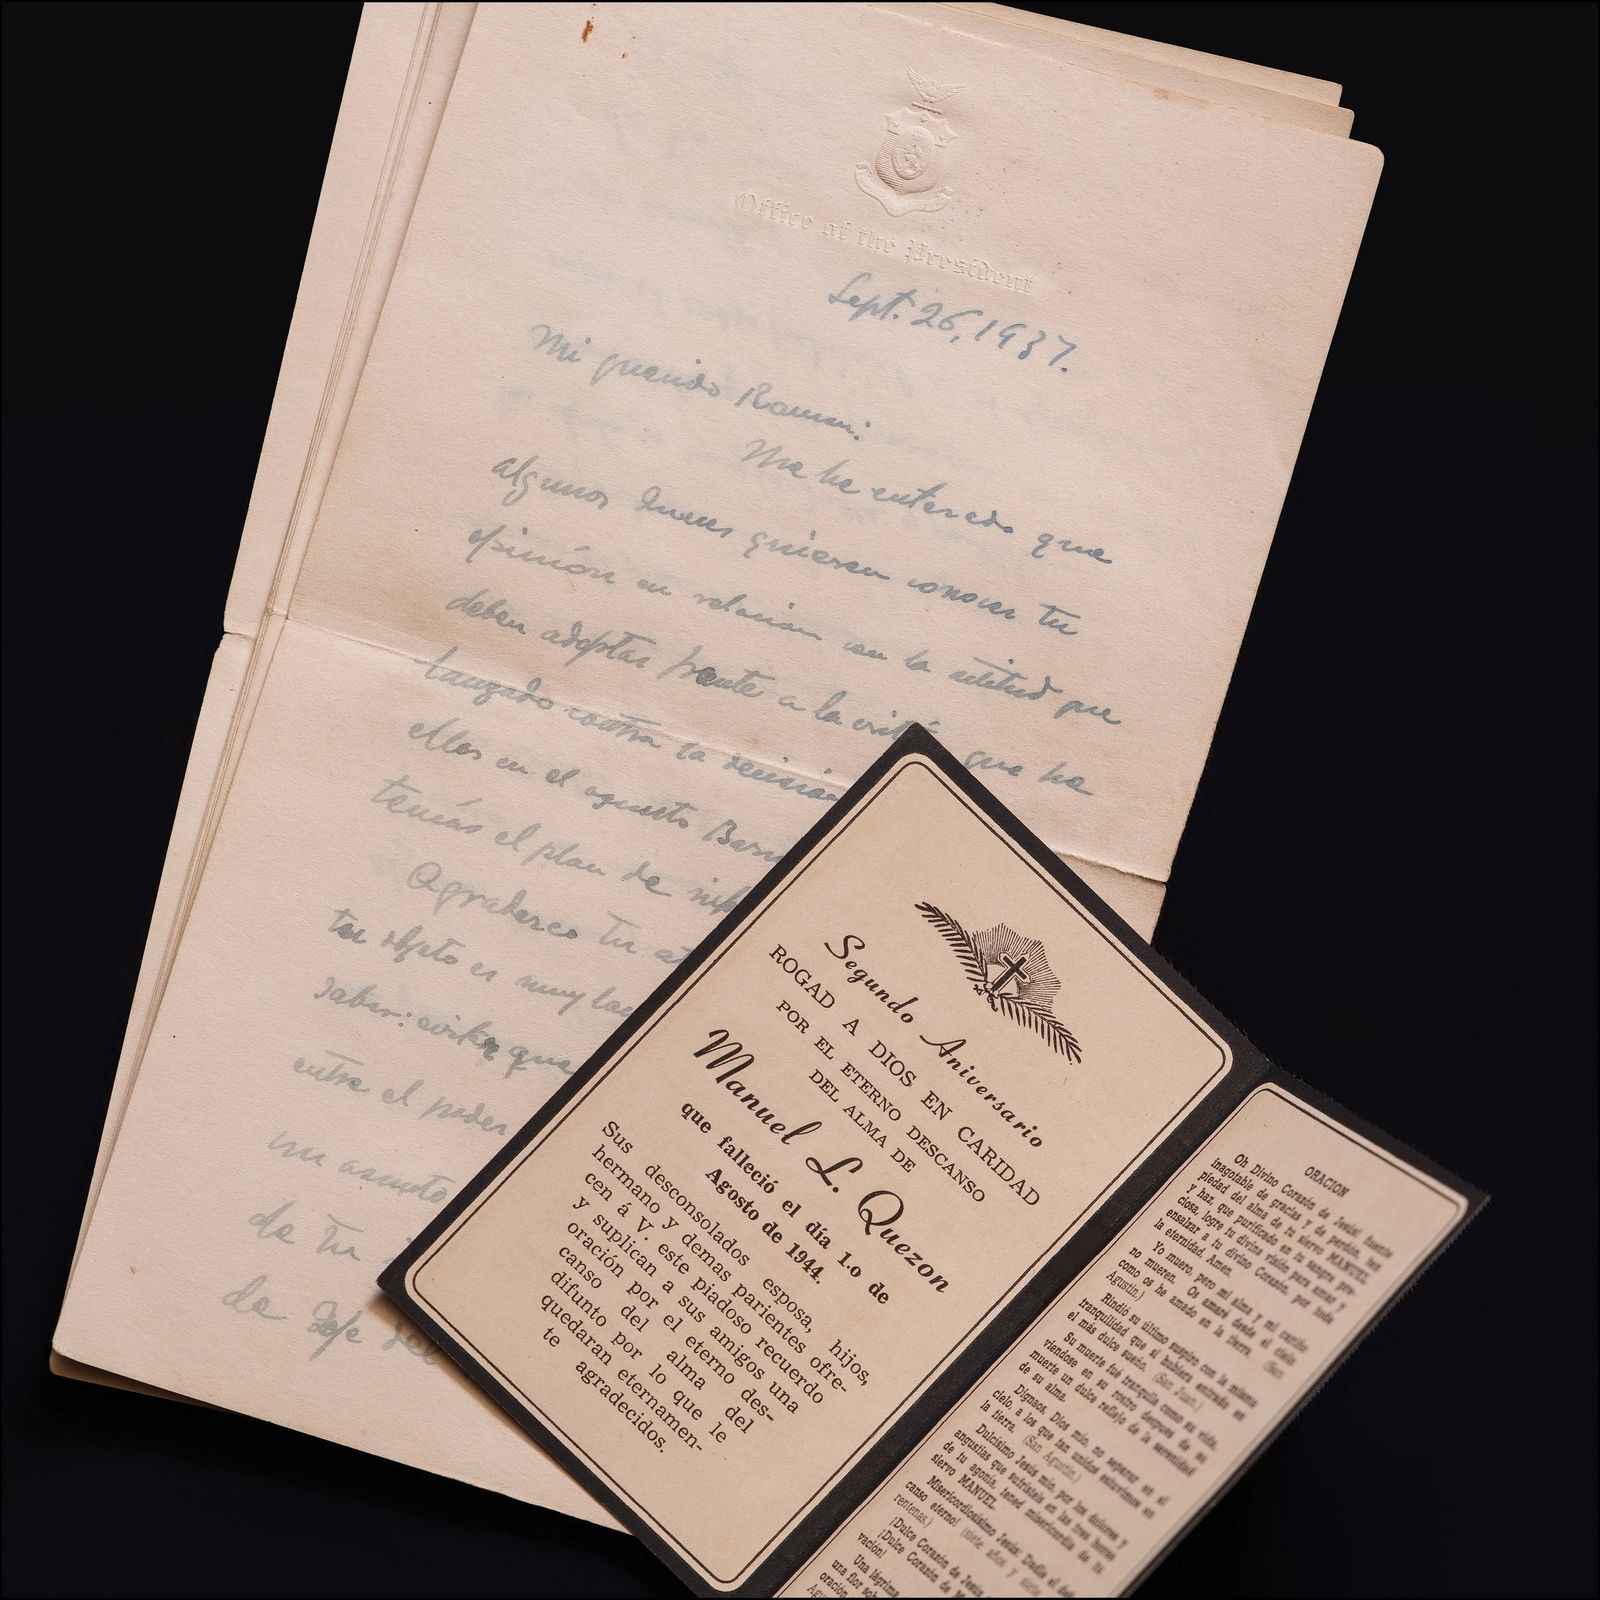 Office of the President
Sept. 26, 1937.
Mi querido Ramon:
Me he enterado que
algunos Jueces quieren conocer tu
opinión en relacion con la actitud que
deben adoptar frente a la que ha
lanzado contra la decisión
ellos en el asunto
temás el plan de
Agradezco tu
tu objeto es muy
saber: evitar que
entre el poder
un asunto
de tu
de Jefe del
Segundo Aniversario
ROGAD A DIOS EN CARIDAD
POR EL ETERNO DESCANSO
DEL ALMA DE
Manuel L. Quezon
que falleció el día 1.o de
Agosto de 1944.
Sus desconsolados esposa, hijos,
hermano y demas parientes ofre-
cen á V. este piadoso recuerdo
y suplican a sus amigos una
oración por el eterno des-
canso del alma del
difunto por lo que le
quedaran eternamen-
te agradecidos.
ORACION
Oh Divino Corazón de Jesús! fuente
inagotable de gracias y de perdón, ten
piedad del alma de tu siervo MANUEL
y haz, que purificado en tu sangre pre-
ciosa, logre tu divina visión para amar y
ensalzar a tu divino Corazón, por toda
la eternidad. Amen.
Yo muero, pero mi alma y mi cariño
no mueren. Os amaré desde el cielo
como os he amado en la tierra. (San
Agustín.)
Rindió su último suspiro con la misma
tranquilidad que si hubiera entrado en
el más dulce sueño. (San Juan.)
Su muerte fué tranquila como su vida,
viendose en su rostro despues de su
muerte un dulce reflejo de la serenidad
de su alma.
Dignaos, Dios mio, no separar en el
cielo, a los que tan unidos estuvimos en
la tierra. (San Agustin.)
Dulcísimo Jesús mio, por los dolores y
angustias que sufristeis en las tres horas
de tu agonía, tened misericordia de tu
siervo MANUEL.
Misericordiosísimo Jesús: Dadle el des-
canso eterno! (siete años y siete
rentenas.)
¡Dulce Corazón de Jesús
¡Dulce Corazón de
vación!
Una lágrima
una flor sob
oración